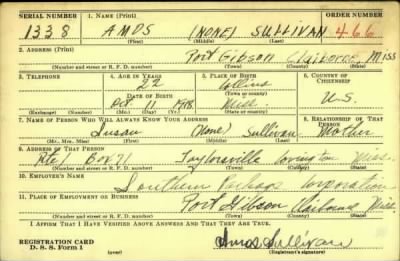 SERIAL NUMBER 1. NAME (Print) ORDER NUMBER
1338 AMOS (NONE) SULLIVAN 466
(First) (Middle) (Last)
2. ADDRESS (Print)
Port Gibson Claiborne Miss
(Number and street or R. F. D. number) (Town) (County) (State)
3. TELEPHONE 4. AGE IN YEARS 5. PLACE OF BIRTH 6. COUNTRY OF CITIZENSHIP
22 Collins
DATE OF BIRTH (Town or county)
Oct 11 1918 Miss. U.S.
(Exchange) (Number) (Mo.) (Day) (Yr.) (State or country)
7. NAME OF PERSON WHO WILL ALWAYS KNOW YOUR ADDRESS 8. RELATIONSHIP OF THAT PERSON
Susan (None) Sullivan Mother
(Mr., Mrs., Miss) (First) (Middle) (Last)
9. ADDRESS OF THAT PERSON
Rte 1 Box 71 Taylorsville Covington Miss.
(Number and street or R. F. D. number) (Town) (County) (State)
10. EMPLOYER'S NAME
Southern Package Corporation
11. PLACE OF EMPLOYMENT OR BUSINESS
Port Gibson Claiborne Miss.
(Number and street or R. F. D. number) (Town) (County) (State)
I AFFIRM THAT I HAVE VERIFIED ABOVE ANSWERS AND THAT THEY ARE TRUE.
REGISTRATION CARD Amos Sullivan
D. S. S. Form 1 (Registrant's signature)